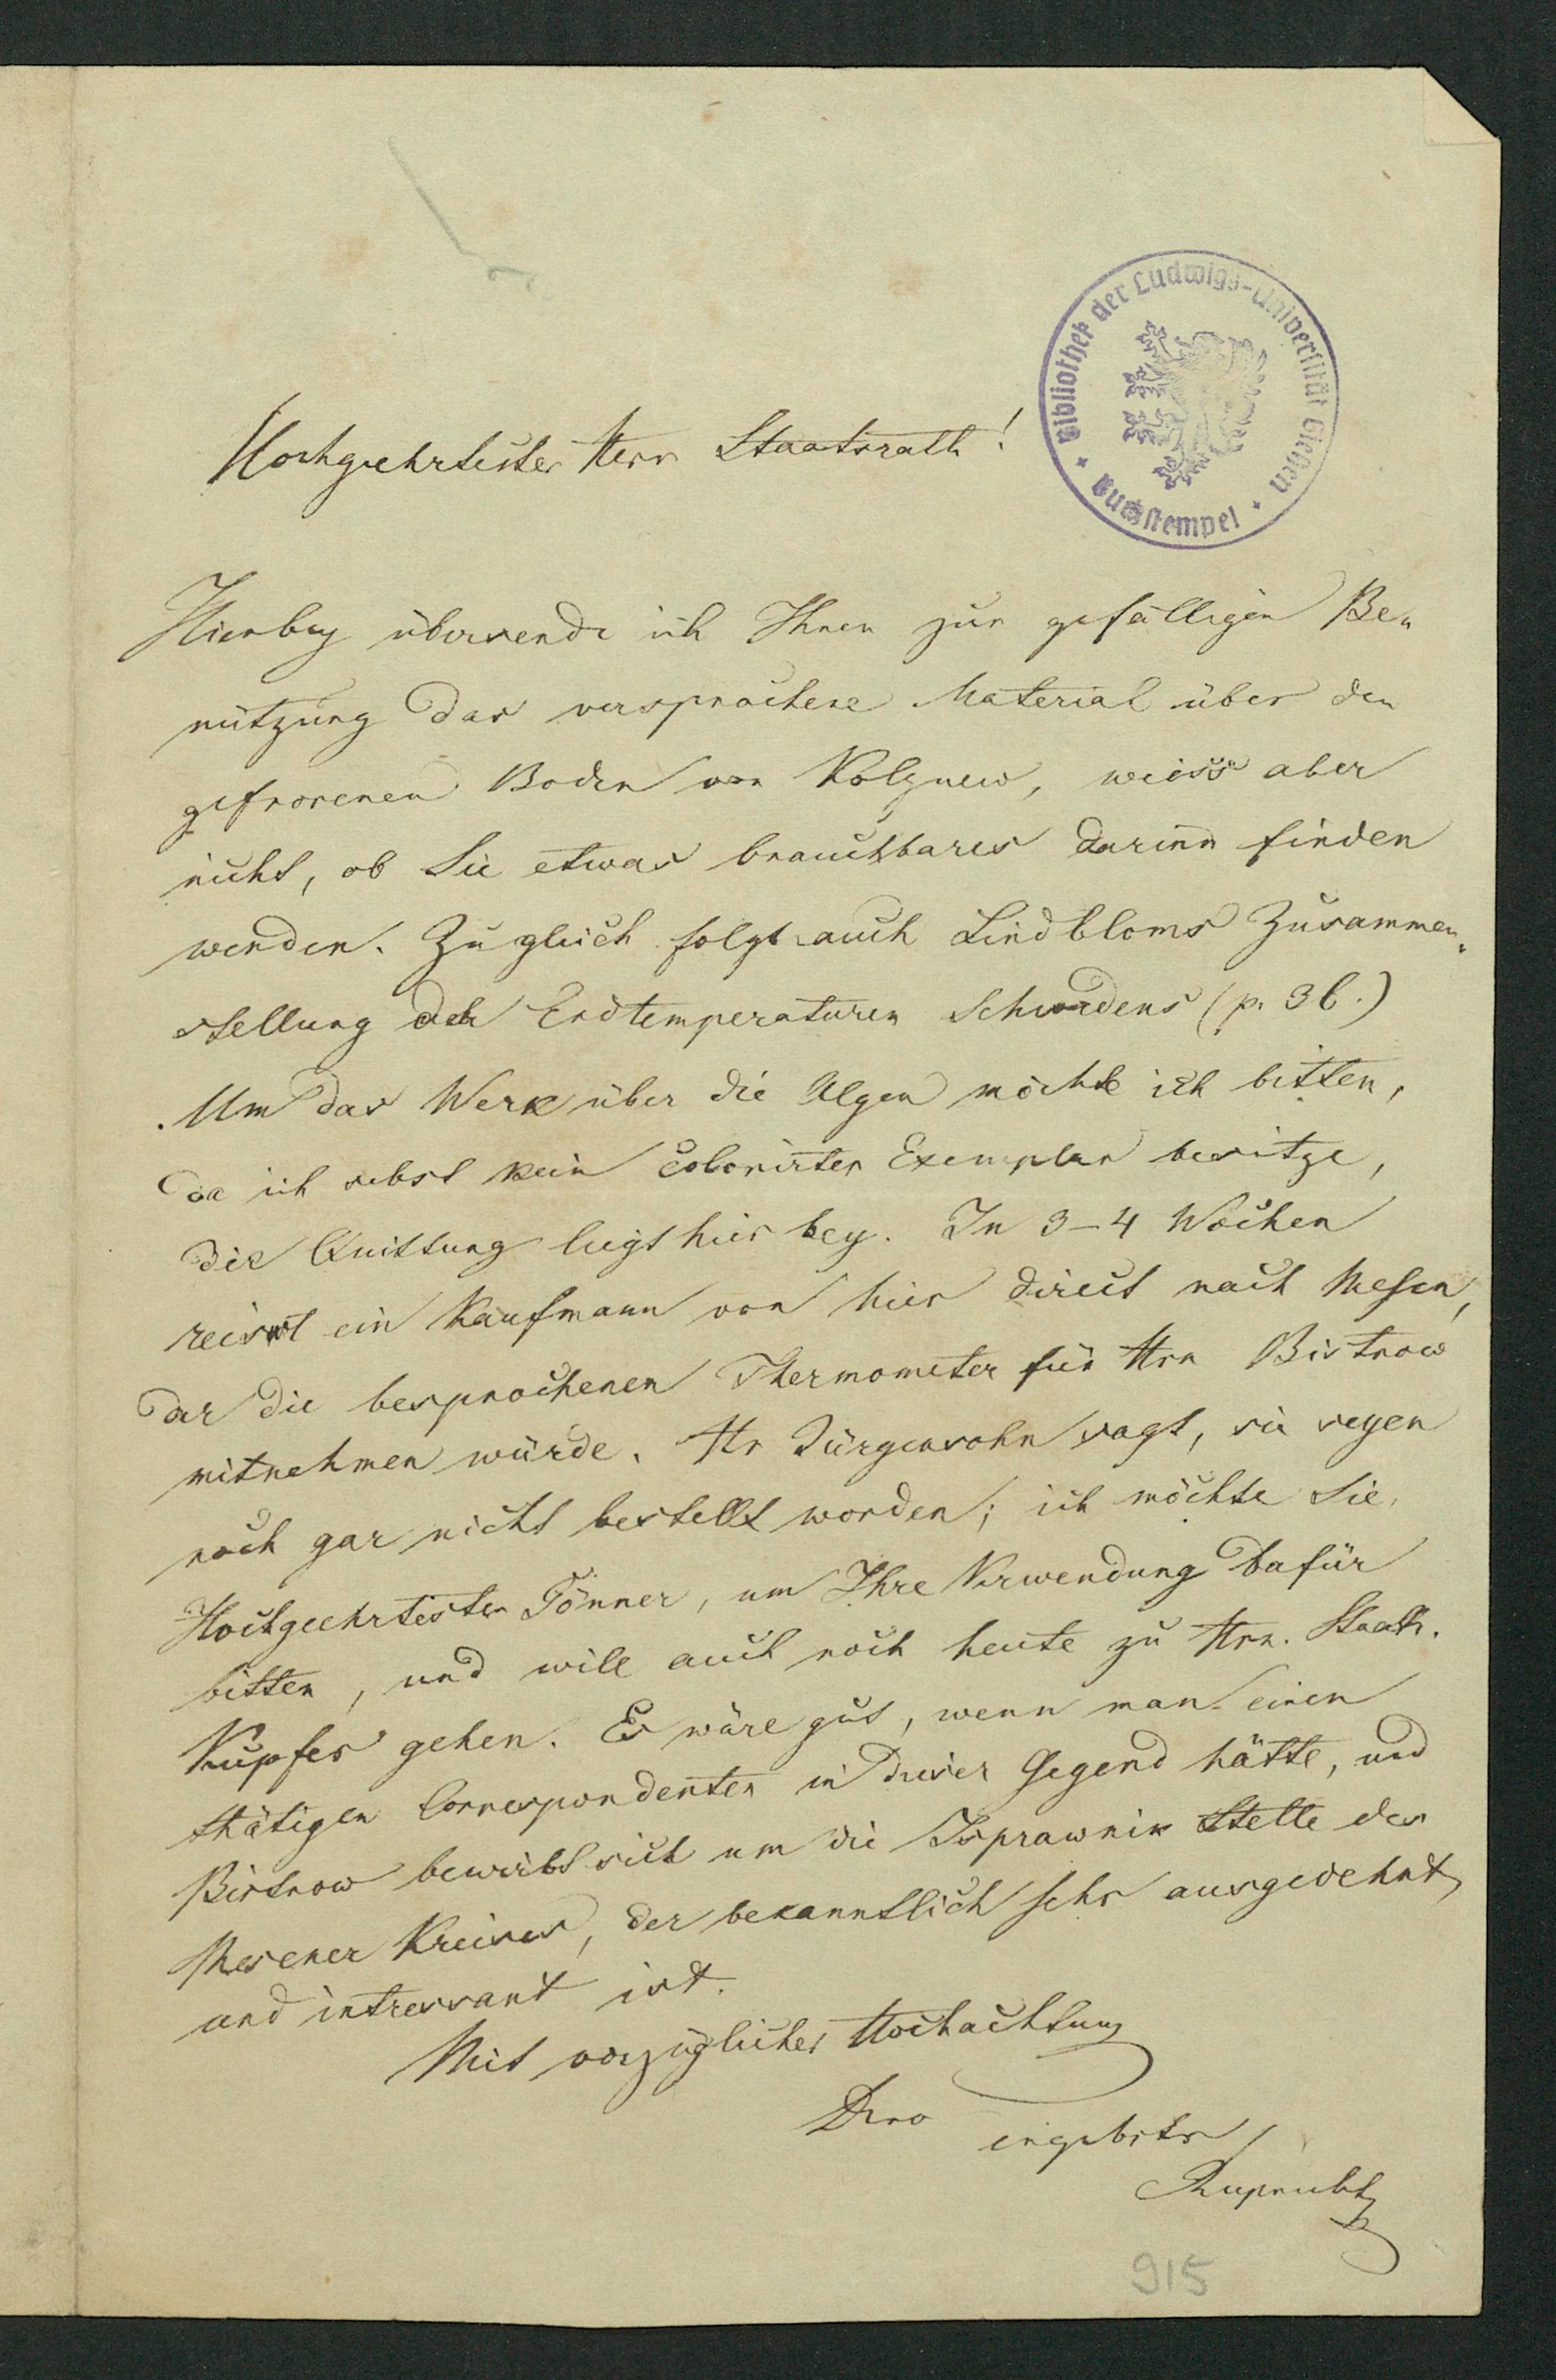 Bibliothek der Ludwigs-Universität Gießen
Buchstempel
Hochgeehrtester Herr Staatsrath!
Hierbey übersende ich Ihnen zur gefälligen Be-
nützung das versprochene Material über den
gefrorenen Boden von Kolgujew, weiss aber
nicht, ob Sie etwas brauchbares darinn finden
werden. Zugleich folgt auch Lindbloms Zusammen-
stellung der Erdtemperaturen Schwedens (p. 36.)
Um das Werk über die Algen möchte ich bitten,
da ich selbst kein colorirtes Exemplar besitze,
die Quittung liegt hier bey. In 3–4 Wochen
reist ein Kaufmann von hier direct nach Mesen,
der die besprochenen Thermometer für Hrn Bistrow
mitnehmen würde. Hr Jürgensohn sagt, sie seyen
noch gar nicht bestellt worden; ich möchte Sie,
Hochgeehrtester Gönner, um Ihre Verwendung dafür
bitten, und will auch noch heute zu Hrn. Staatsr.
Kupfer gehen. Es wäre gut, wenn man einen
thätigen Correspondenten in dieser Gegend hätte, und
Bistrow bewirbt sich um die Isprawnik Stelle des
Mesener Kreises, der bekanntlich sehr ausgedehnt
und intressant ist.
Mit vorzüglicher Hochachtung
Dero
ergebster
Ruprecht
915